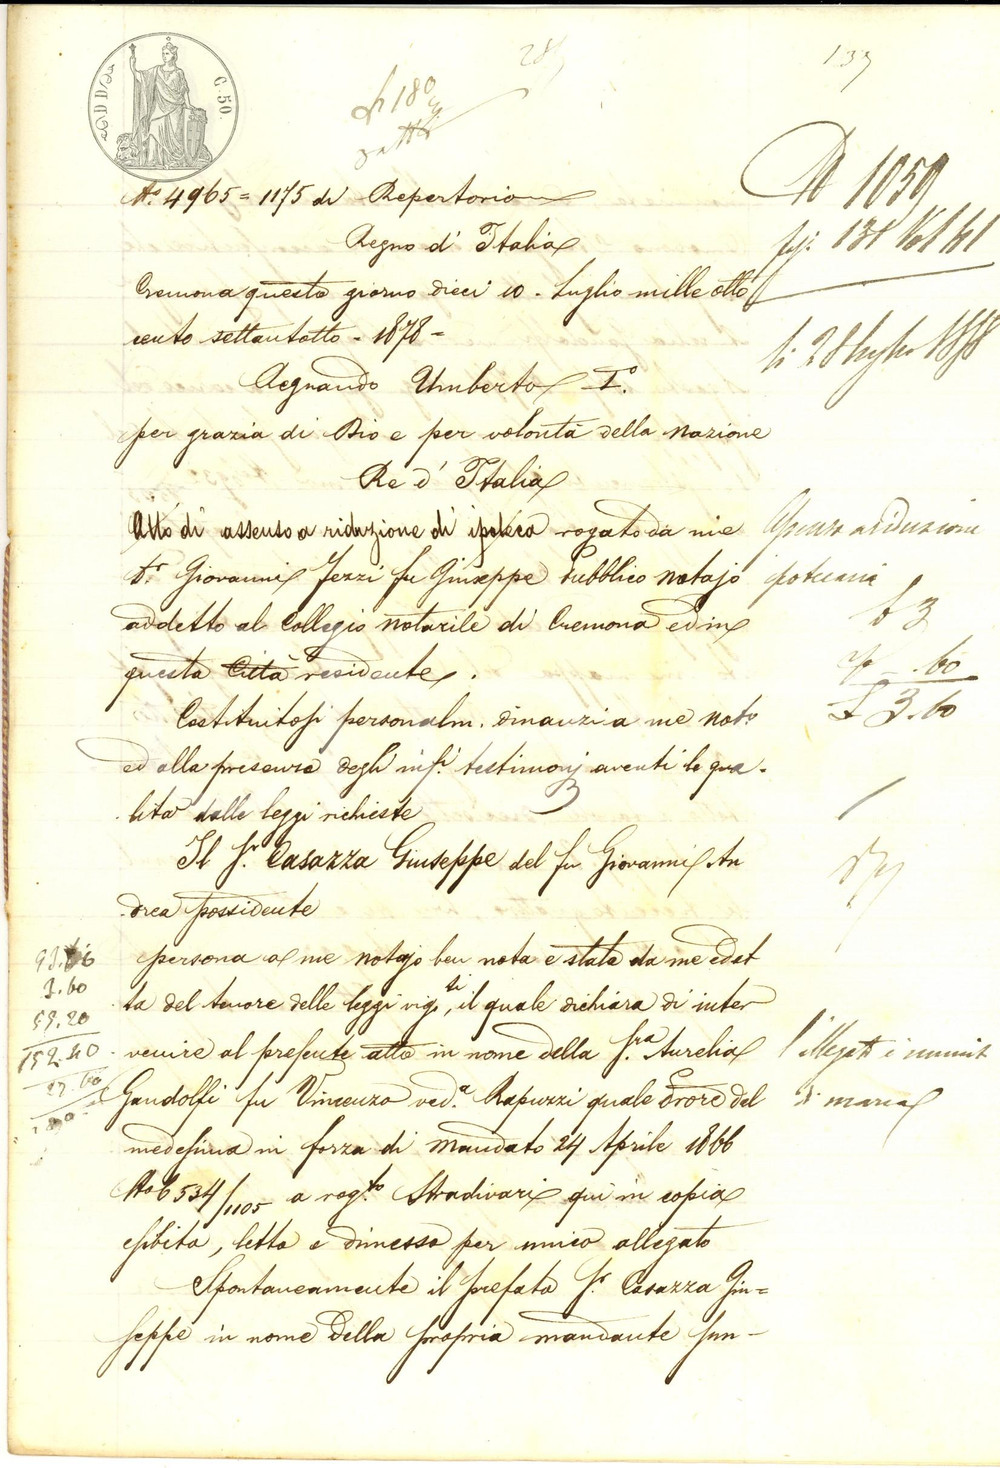 C. 50.
133
N.° 4965 = 1175 di Repertorio
Regno d' Italia
Cremona questo giorno dieci 10 - Luglio mille otto
cento settantotto - 1878 -
Regnando Umberto I.°
per grazia di Dio e per volontà della Nazione
Re d' Italia
Atto di assenso a riduzione di ipoteca rogato da me
D.r Giovanni Jezzi fu Giuseppe Pubblico Notajo
addetto al Collegio notarile di Cremona ed in
questa Città residente.
Costituitosi personalm. dinanzi a me Not.o
ed alla presenza degli inf.i testimonj aventi le qua-
lità dalle leggi richieste
Il S.r Casazza Giuseppe del fu Giovanni An
drea possidente
persona a me Notajo ben nota e stata da me edot
ta del tenore delle leggi vig.ti, il quale dichiara di inter
venire al presente atto in nome della S.ra Aurelia
Gandolfi fu Vincenzo ved.a Rapuzzi quale Proc.re del
medesima in forza di Mandato 24 Aprile 1866
N.o 6534/1105 a rog.to Stradivari qui in copia
esibito, letto e dimesso per unico allegato
Spontaneamente il prefato S.r Casazza Giu=
seppe in nome della propria mandante sun-
N 1059
fg: 131 Vol 61
li 28 luglio 1878
Assenso a riduzione
ipotecaria
£ 3
.60
£ 3.60
3.60
59.20
152.40